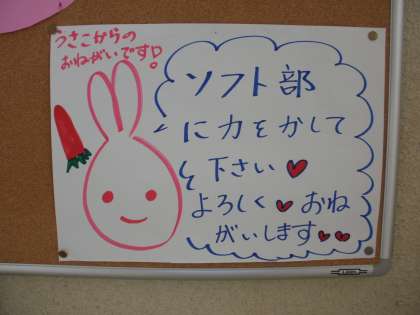 うさこからの
おねがいです!
ソフト部
に力をかして
下さい♥
よろしく♥おね
がいします♥♥